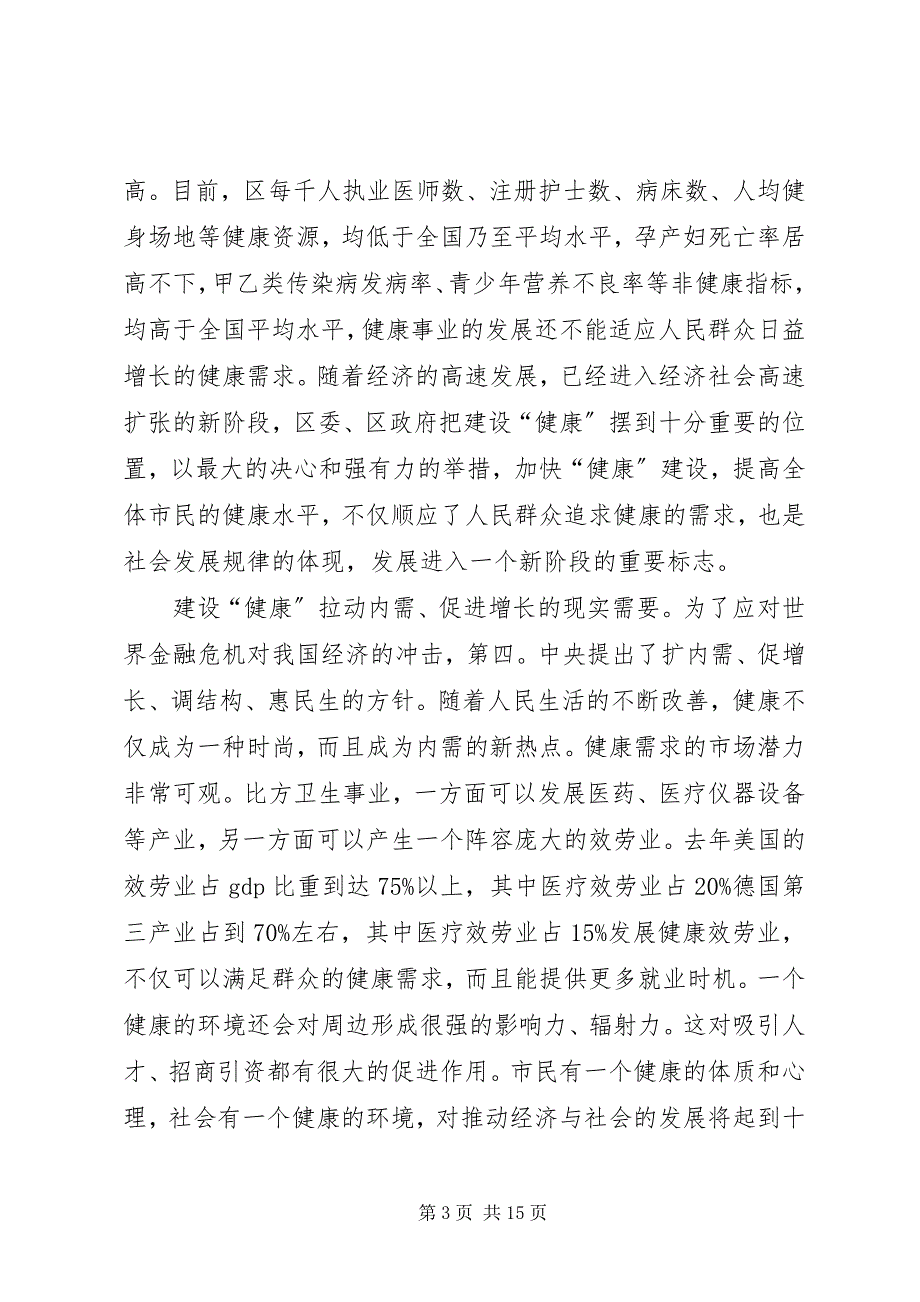 高。目前，区每千人执业医师数、注册护士数、病床数、人均健
身场地等健康资源，均低于全国乃至平均水平，孕产妇死亡率居
高不下，甲乙类传染病发病率、青少年营养不良率等非健康指标，
均高于全国平均水平，健康事业的发展还不能适应人民群众日益
增长的健康需求。随着经济的高速发展，已经进入经济社会高速
扩张的新阶段，区委、区政府把建设“健康〞摆到十分重要的位
置，以最大的决心和强有力的举措，加快“健康〞建设，提高全
体市民的健康水平，不仅顺应了人民群众追求健康的需求，也是
社会发展规律的体现，发展进入一个新阶段的重要标志。
建设“健康〞拉动内需、促进增长的现实需要。为了应对世
界金融危机对我国经济的冲击，第四。中央提出了扩内需、促增
长、调结构、惠民生的方针。随着人民生活的不断改善，健康不
仅成为一种时尚，而且成为内需的新热点。健康需求的市场潜力
非常可观。比方卫生事业，一方面可以发展医药、医疗仪器设备
等产业，另一方面可以产生一个阵容庞大的效劳业。去年美国的
效劳业占 gdp 比重到达 75%以上，其中医疗效劳业占 20%德国第
三产业占到 70%左右，其中医疗效劳业占 15%发展健康效劳业，
不仅可以满足群众的健康需求，而且能提供更多就业时机。一个
健康的环境还会对周边形成很强的影响力、辐射力。这对吸引人
才、招商引资都有很大的促进作用。市民有一个健康的体质和心
理，社会有一个健康的环境，对推动经济与社会的发展将起到十
第 3 页 共 15 页